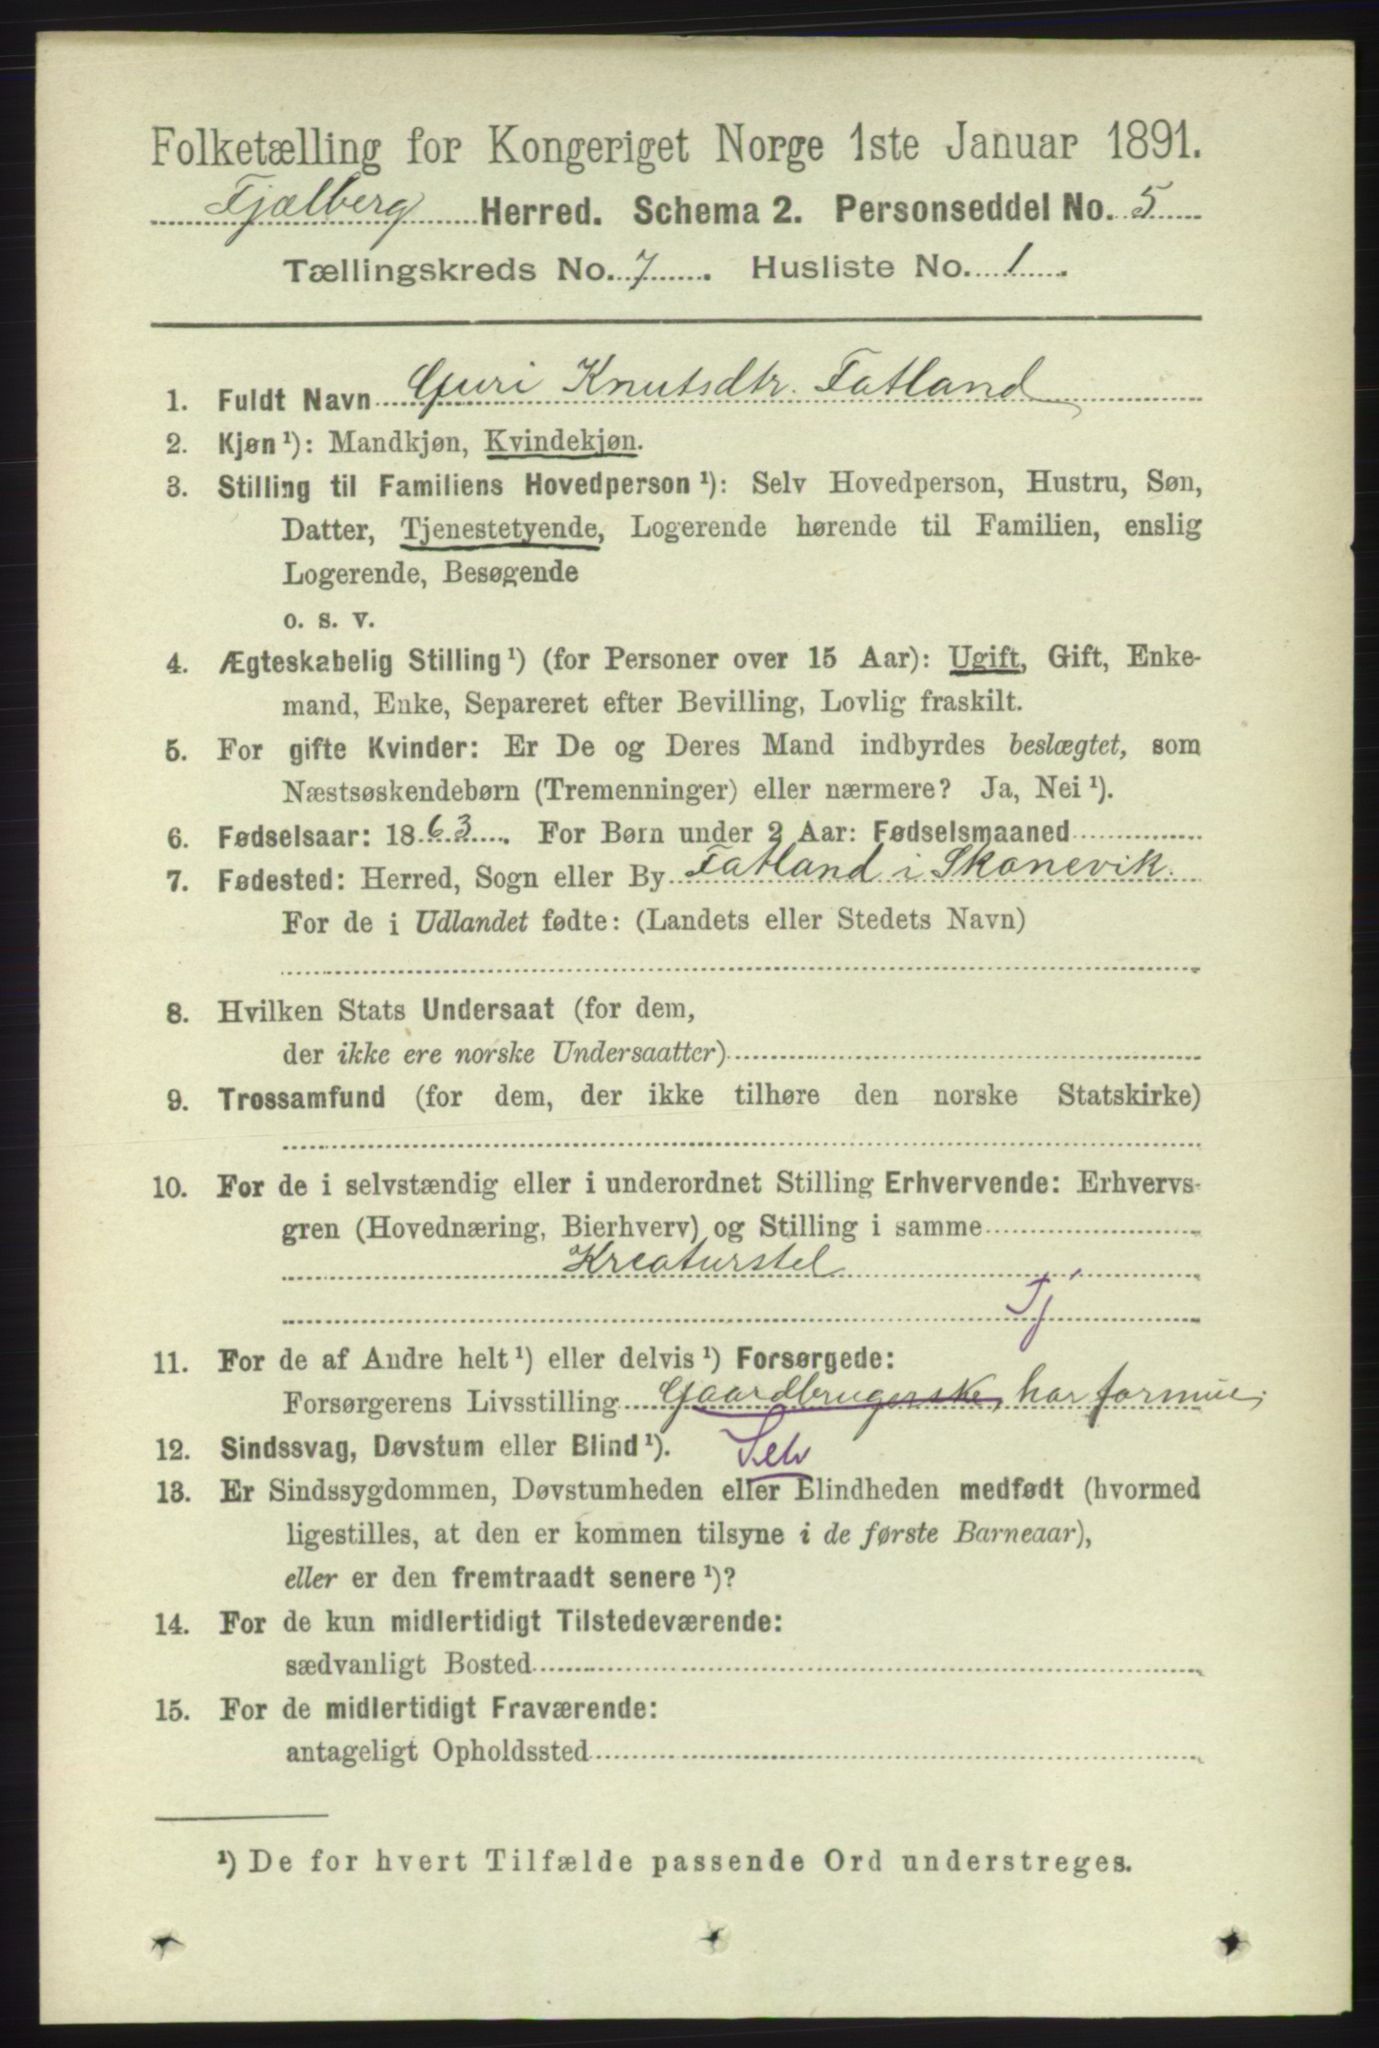 Folketælling for Kongeriget Norge 1ste Januar 1891.
Fjælberg Herred. Schema 2. Personseddel No. 5
Tællingskreds No. 7. Husliste No. 1.
1. Fuldt Navn Guri Knutsdtr. Fatland
2. Kjøn ¹): Mandkjøn, Kvindekjøn.
3. Stilling til Familiens Hovedperson ¹): Selv Hovedperson, Hustru, Søn,
Datter, Tjenestetyende, Logerende hørende til Familien, enslig
Logerende, Besøgende
o. s. v.
4. Ægteskabelig Stilling ¹) (for Personer over 15 Aar): Ugift, Gift, Enke-
mand, Enke, Separeret efter Bevilling, Lovlig fraskilt.
5. For gifte Kvinder: Er De og Deres Mand indbyrdes beslægtet, som
Næstsøskendebørn (Tremenninger) eller nærmere? Ja, Nei ¹).
6. Fødselsaar: 1863. For Børn under 2 Aar: Fødselsmaaned
7. Fødested: Herred, Sogn eller By Fatland i Skonevik.
For de i Udlandet fødte: (Landets eller Stedets Navn)
8. Hvilken Stats Undersaat (for dem,
der ikke ere norske Undersaatter)
9. Trossamfund (for dem, der ikke tilhøre den norske Statskirke)
10. For de i selvstændig eller i underordnet Stilling Erhvervende: Erhvervs-
gren (Hovednæring, Bierhverv) og Stilling i samme
Kreaturstel
Tj
11. For de af Andre helt ¹) eller delvis ¹) Forsørgede:
Forsørgerens Livsstilling Gaardbrugerske, har formue;
12. Sindssvag, Døvstum eller Blind ¹). Selv
13. Er Sindssygdommen, Døvstumheden eller Blindheden medfødt (hvormed
ligestilles, at den er kommen tilsyne i de første Barneaar),
eller er den fremtraadt senere ¹)?
14. For de kun midlertidigt Tilstedeværende:
sædvanligt Bosted
15. For de midlertidigt Fraværende:
antageligt Opholdssted
¹) De for hvert Tilfælde passende Ord understreges.